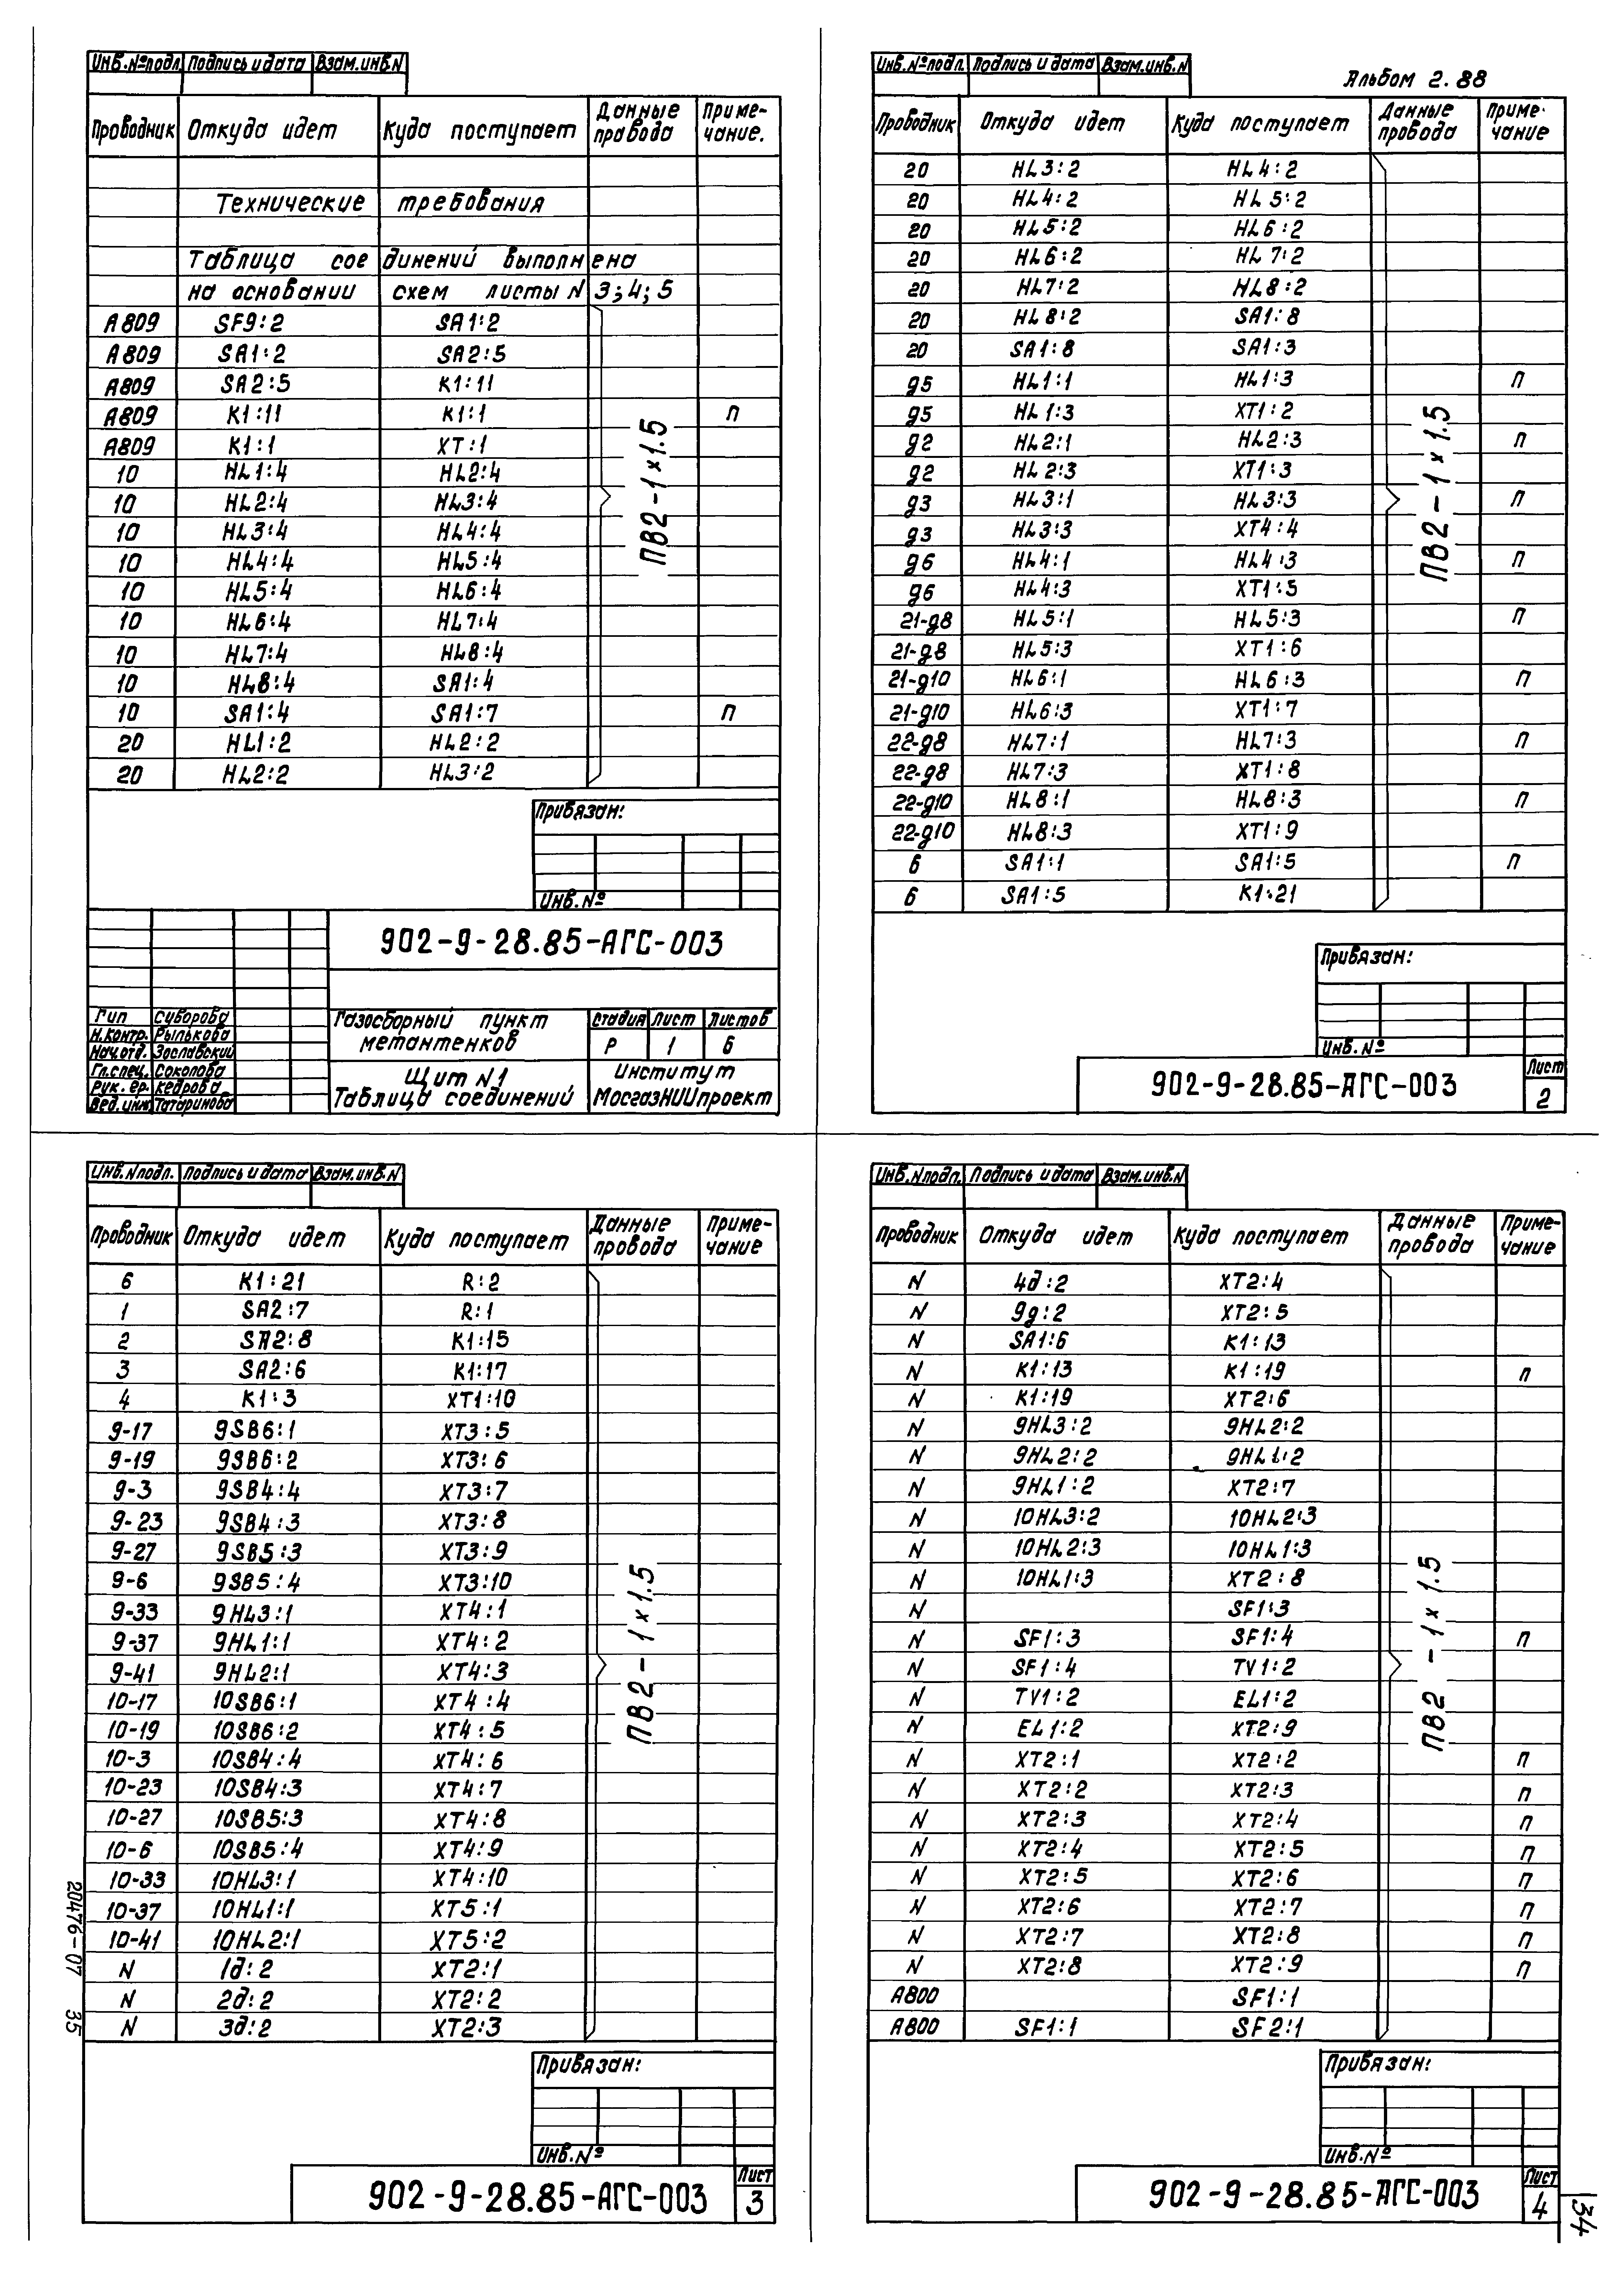 Инв.№подл. Подпись и дата Взам.инв.N
Проводник Откуда идет Куда поступает Данные провода Примечание.
Технические требования
Таблица соединений выполнена
на основании схем листы N 3;4;5
А809 SF9:2 SA1:2
А809 SA1:2 SA2:5
А809 SA2:5 K1:11
А809 K1:11 K1:1 П
А809 K1:1 XT:1
10 HL1:4 HL2:4
10 HL2:4 HL3:4
10 HL3:4 HL4:4
10 HL4:4 HL5:4
10 HL5:4 HL6:4
10 HL6:4 HL7:4
10 HL7:4 HL8:4
10 HL8:4 SA1:4
10 SA1:4 SA1:7 П
20 HL1:2 HL2:2
20 HL2:2 HL3:2
ПВ2-1×1.5
Привязан:
Инв.№
902-9-28.85-АГС-003
Гип Суворова
Н.контр. Рылькова
Нач.отд. Зославский
Гл.спец. Соколова
Рук. гр. Кедрова
Вед.инж. Татаринова
Газосборный пункт
метантенков
Стадия Лист Листов
Р 1 6
Щит N1
Таблица соединений
Институт
МосгазНИИпроект
Инв.№подл. Подпись и дата Взам.инв.N
Альбом 2.88
Проводник Откуда идет Куда поступает Данные провода Примечание
20 HL3:2 HL4:2
20 HL4:2 HL5:2
20 HL5:2 HL6:2
20 HL6:2 HL7:2
20 HL7:2 HL8:2
20 HL8:2 SA1:8
20 SA1:8 SA1:3
g5 HL1:1 HL1:3 П
g5 HL1:3 XT1:2
g2 HL2:1 HL2:3 П
g2 HL2:3 XT1:3
g3 HL3:1 HL3:3 П
g3 HL3:3 XT4:4
g6 HL4:1 HL4:3 П
g6 HL4:3 XT1:5
21-g8 HL5:1 HL5:3 П
21-g8 HL5:3 XT1:6
21-g10 HL6:1 HL6:3 П
21-g10 HL6:3 XT1:7
22-g8 HL7:1 HL7:3 П
22-g8 HL7:3 XT1:8
22-g10 HL8:1 HL8:3 П
22-g10 HL8:3 XT1:9
6 SA1:1 SA1:5 П
6 SA1:5 K1:21
ПВ2-1×1.5
Привязан:
Инв.№
902-9-28.85-АГС-003
Лист
2
Инв.Nподл. Подпись и дата Взам.инв.N
Проводник Откуда идет Куда поступает Данные провода Примечание
6 K1:21 R:2
1 SA2:7 R:1
2 SA2:8 K1:15
3 SA2:6 K1:17
4 K1:3 XT1:10
9-17 9SB6:1 XT3:5
9-19 9SB6:2 XT3:6
9-3 9SB4:4 XT3:7
9-23 9SB4:3 XT3:8
9-27 9SB5:3 XT3:9
9-6 9SB5:4 XT3:10
9-33 9HL3:1 XT4:1
9-37 9HL1:1 XT4:2
9-41 9HL2:1 XT4:3
10-17 10SB6:1 XT4:4
10-19 10SB6:2 XT4:5
10-3 10SB4:4 XT4:6
10-23 10SB4:3 XT4:7
10-27 10SB5:3 XT4:8
10-6 10SB5:4 XT4:9
10-33 10HL3:1 XT4:10
10-37 10HL1:1 XT5:1
10-41 10HL2:1 XT5:2
N 1д:2 XT2:1
N 2д:2 XT2:2
N 3д:2 XT2:3
ПВ2-1×1.5
20476-07 35
Привязан:
Инв.№
902-9-28.85-АГС-003
Лист
3
Инв.Nподл. Подпись и дата Взам.инв.N
Проводник Откуда идет Куда поступает Данные провода Примечание
N 4д:2 XT2:4
N 9g:2 XT2:5
N SA1:6 K1:13
N K1:13 K1:19 П
N K1:19 XT2:6
N 9HL3:2 9HL2:2
N 9HL2:2 9HL1:2
N 9HL1:2 XT2:7
N 10HL3:2 10HL2:3
N 10HL2:3 10HL1:3
N 10HL1:3 XT2:8
N SF1:3
N SF1:3 SF1:4 П
N SF1:4 TV1:2
N TV1:2 EL1:2
N EL1:2 XT2:9
N XT2:1 XT2:2 П
N XT2:2 XT2:3 П
N XT2:3 XT2:4 П
N XT2:4 XT2:5 П
N XT2:5 XT2:6 П
N XT2:6 XT2:7 П
N XT2:7 XT2:8 П
N XT2:8 XT2:9 П
А800 SF1:1
А800 SF1:1 SF2:1
ПВ2-1×1.5
Привязан:
Инв.№
902-9-28.85-АГС-003
Лист
4
34